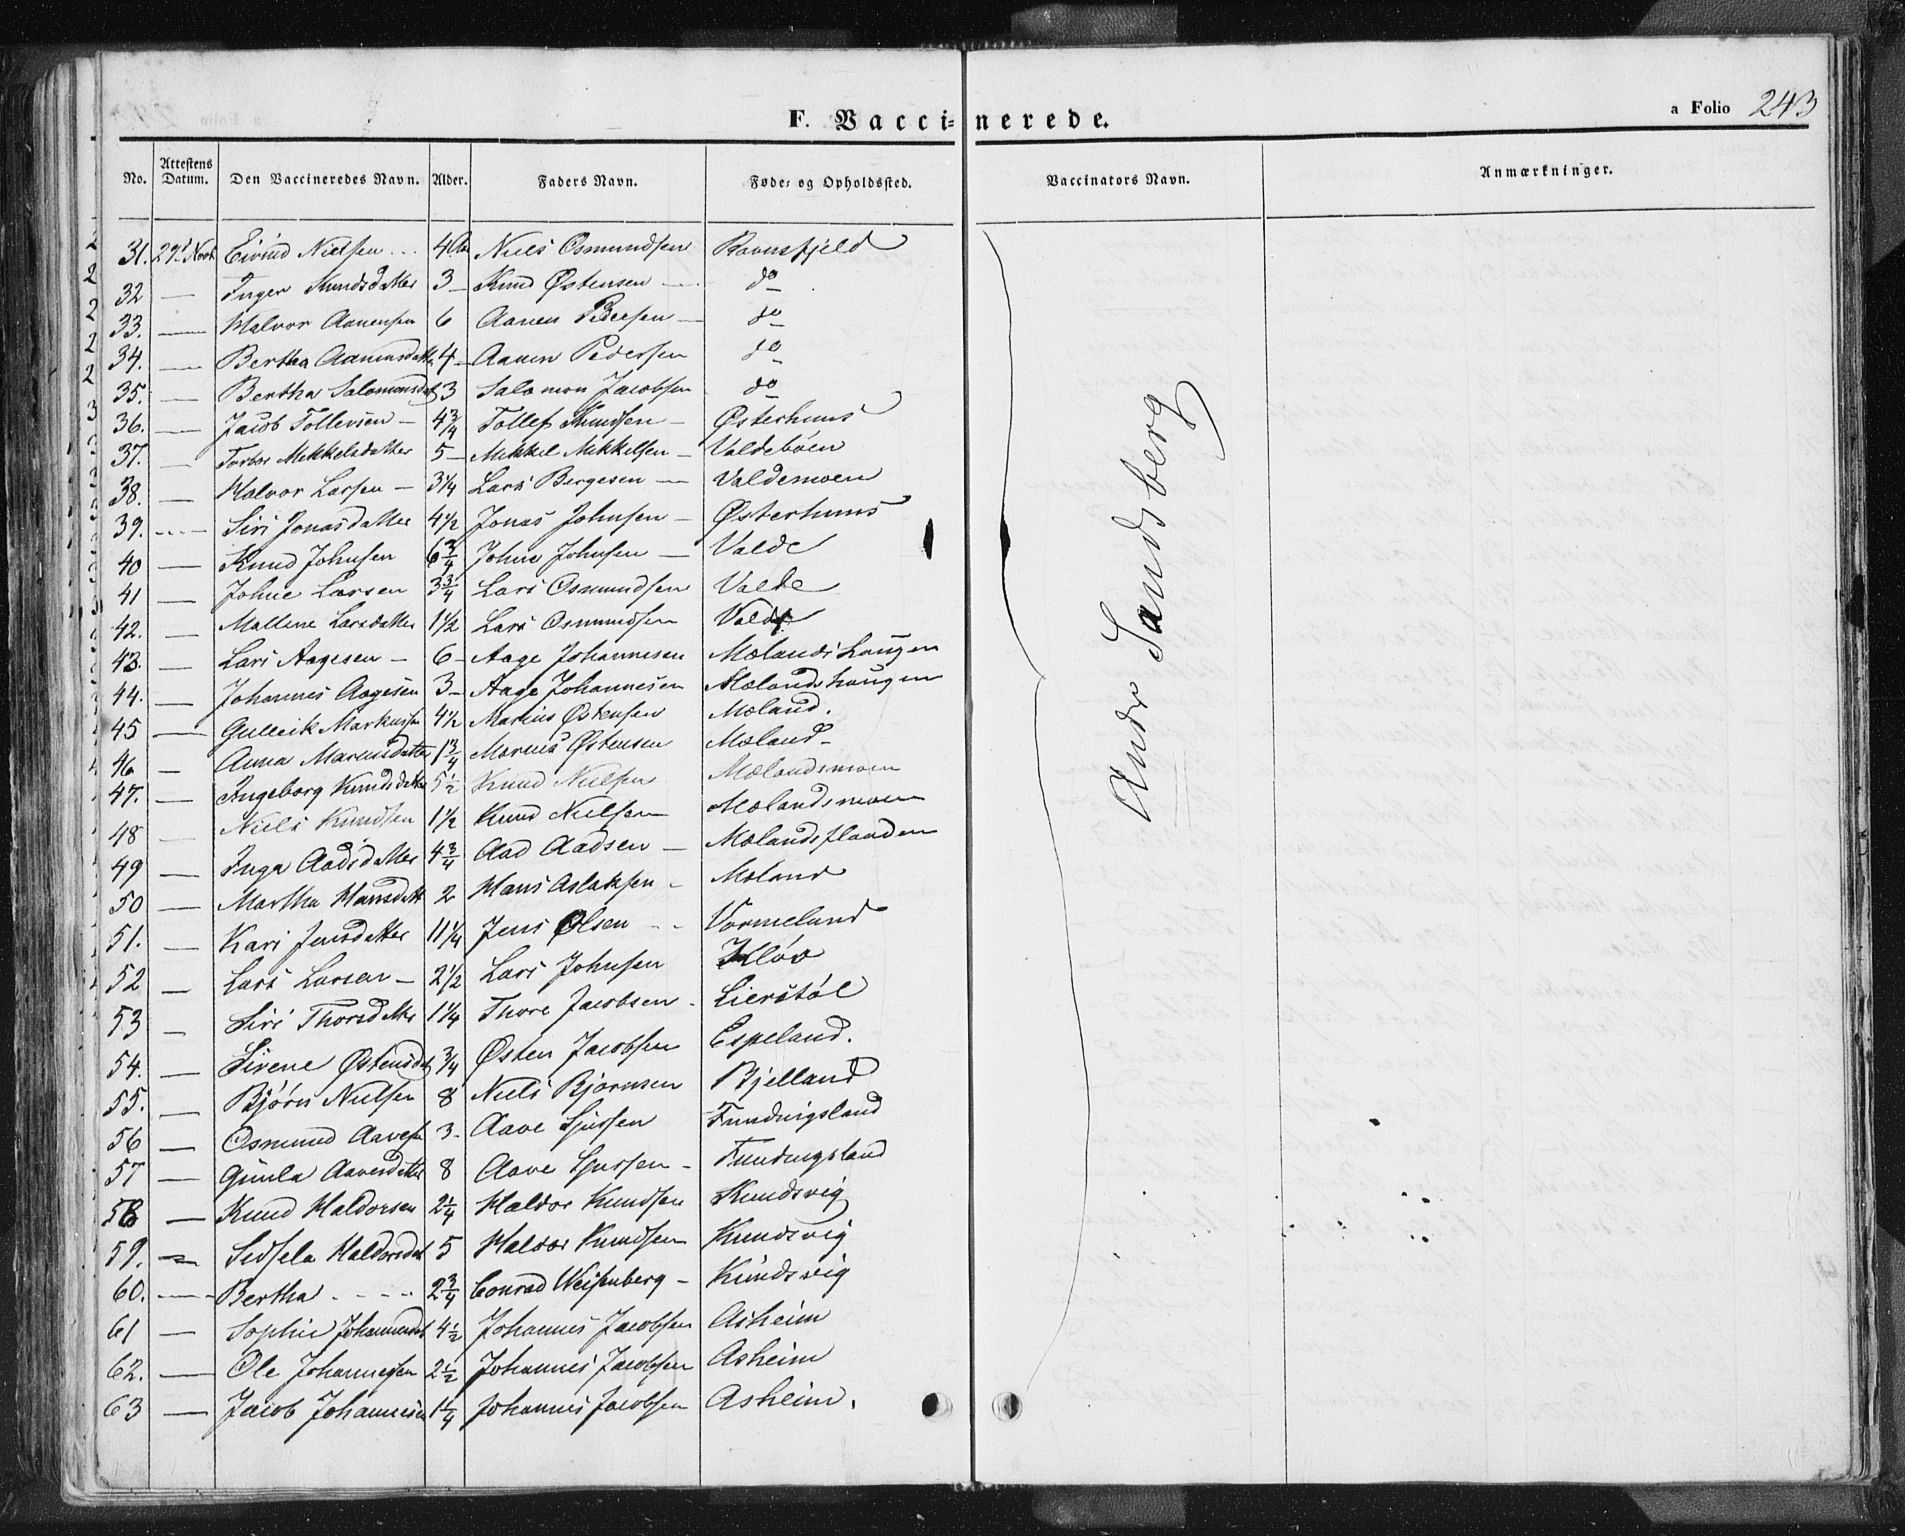 F. Vaccinerede.
a Folio 243
No. Attestens Datum. Den Vaccineredes Navn. Alder. Faders Navn. Føde- og Opholdssted. Vaccinators Navn. Anmærkninger.
31. Novb Eivind Nielsen 4 Niels Osmundsen Ravnsfjeld
32 — Inger Knudsdatter 3 — Knud Østensen — do
33. — Halvor Aanensen 6 Aanen Pedersen — do
34. — Bertha Aanensdatter 4 — Aanen Pedersen do
35. — Bertha Salomonsdat 3 Salomon Jacobsen do
36. — Jacob Tollevsen — 4 3/4 Tollef Knudsen — Østerhuus
37. — Torbor Mikkelsdatter 5 — Mikkel Mikkelsen — Valdebøen
38. — Halvor Larsen — 3 1/4 Lars Bergesen — Valdemoen
39. — Siri Jonasdatter 4 1/2 Jonas Johnsen — Østerhuus
40 — Knud Johnsen 6 3/4 Johne Johnsen — Valde
41 — Johne Larsen 3 3/4 Lars Osmundsen Valde
42. — Mallene Larsdatter 1 1/2 Lars Osmundsen Valde
43. — Lars Aagesen — 6 — Aage Johannesen Mølandshaugen
44. — Johannes Aagesen 3 — Aage Johannesen Mølandshaugen
45 — Gulleik Markussen 4 1/2 Marcus Østensen Møland.
46 — Anna Marcusdatter 1 3/4 Marcus Østensen Møland —
47. — Ingeborg Knudsdatter 5 1/2 Knud Nielsen Mølandsmoen
48 — Niels Knudsen 1 1/2 Knud Nielsen Mølandsmoen
49 — Inga Aadsdatter 4 3/4 Aad Aadsen — Mølandsflaaden
50 — Martha Hansdatt 2 Hans Aslaksen — Møland
51. — Kari Jensdatter 11 1/4 Jens Olsen - - Vormeland
52 — Lars Larsen — 2 1/2 Lars Johnsen Kløv
53 — Siri Thorsdatter 1 1/4 Thore Jacobsen — Lierstøl
54. — Sirene Østensdat 3/4 Østen Jacobsen Espeland.
55. — Bjørn Nielsen 8 Niels Bjørnsen Bjelland
56 — Osmund Aavesen 3 - Aave Sjursen Fundingsland
57 — Gunla Aavesdatter 8 Aave Sjursen — Fundingsland
58 — Knud Haldorsen 2 1/4 Haldor Knudsen Knudsvig
59. — Sidsela Haldorsdat 5 Haldor Knudsen Knudsvig
60. — Bertha - - - - 2 3/4 Conrad Weisenberg — Knudsvig
61 — Sophie Johannesdat 4 1/2 Johannes Jacobsen Asheim
62. — Ole Johannesen 2 1/2 Johannes Jacobsen Asheim
63 — Jacob Johannesen 1 1/4 Johannes Jacobsen Asheim.
Sandsberg